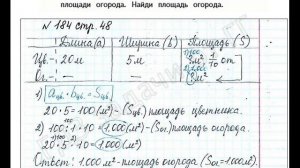 площади огорода. Найди площадь огорода.
№ 184 стр. 48
Длина (a) Ширина (b) Площадь (S)
Цв. - 20 м 5 м ? м², 1/10 от
Ог. - ? м²
1) a цв. · b цв. = S цв.
20 · 5 = 100 (м²) - площадь цветника.
2) 100 : 1 · 10 = 1.000 (м²) - Sог. площадь огорода.
20 · 5 · 10 = 1.000 (м²)
Ответ: 1.000 м² - площадь огорода (Sог = 1000 м²).